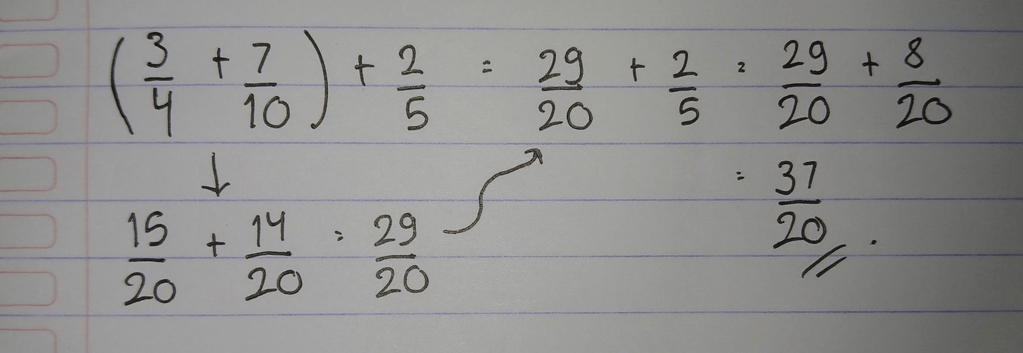 (3/4 + 7/10) + 2/5 = 29/20 + 2/5 = 29/20 + 8/20
= 37/20 .
↓
15/20 + 14/20 = 29/20